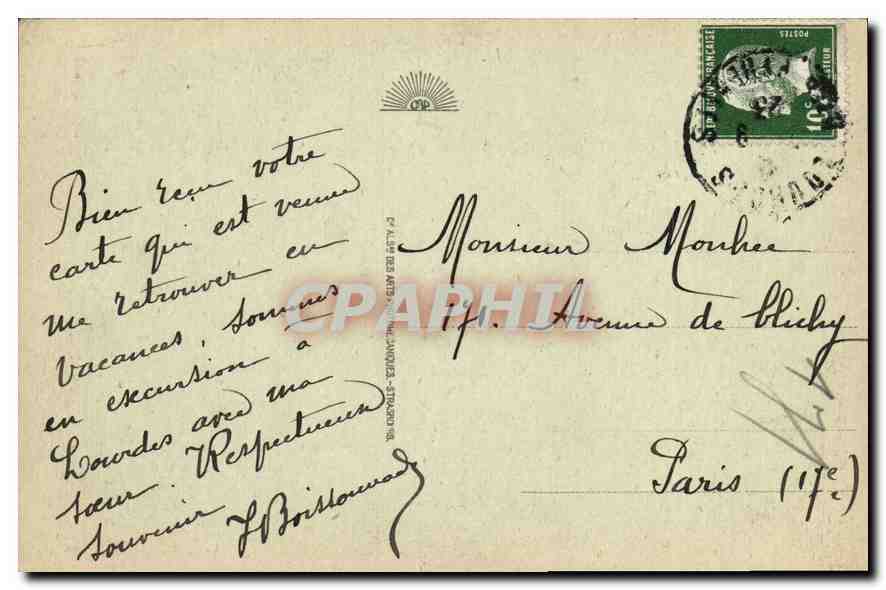 Bien reçu votre
carte qui est venue
me retrouver en
vacances, sommes
en excursion à
Lourdes avec ma
sœur. Respectueux
souvenir
CAP
CIE ALSNE DES ARTS STRASBG
CPAPHIL
REPUBLIQUE FRANÇAISE
POSTES
PASTEUR
10c
LOURDES
Monsieur
171. Avenue de Clichy
Paris (17e)